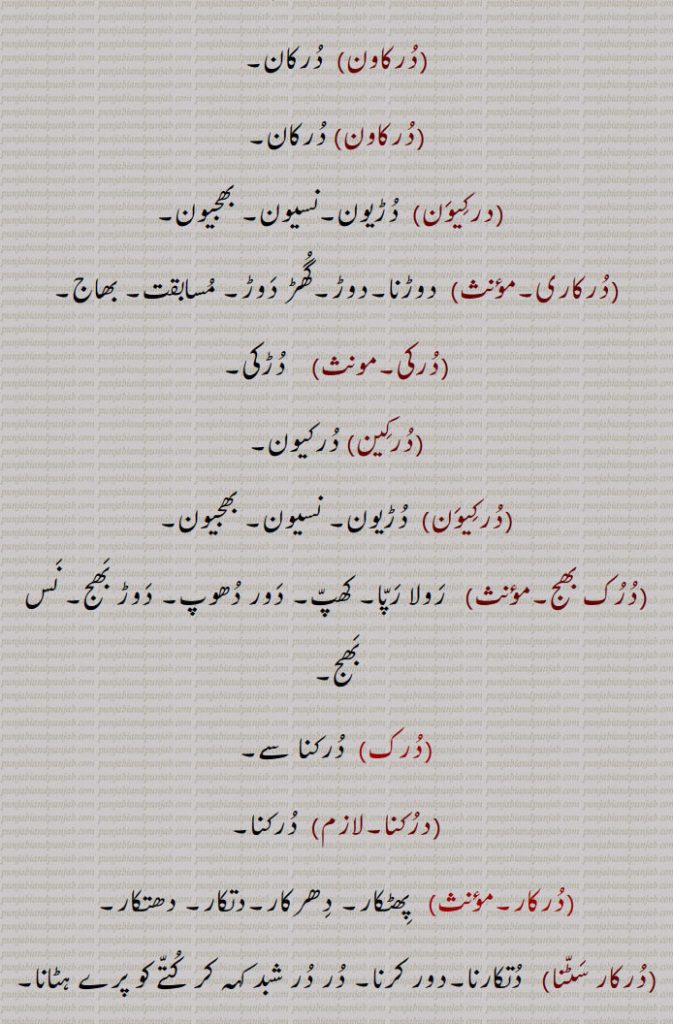 (دُرکاون) دُرکان۔
(دُرکاون) دُرکان۔
(درکِیوَن) دُڑیون۔ نسیون۔ بھجیون۔
(دُرکاری۔ مؤنث) دوڑنا۔ دوڑ۔ گُھڑ دَوڑ۔ مُسابقت۔ بھاج۔
(دُرکی۔ مونث) دُڑکی۔
(دُرکِین) دُرکیون۔
(دُرکِیوَن) دُڑیون۔ نسیون۔ بھجیون۔
(دُرُک بھج۔ مؤنث) رَولا رَپّا۔ کھپّ۔ دَور دُھوپ۔ دَوڑ بَھج۔ نَس
بَھج۔
(دُرک) دُرکنا سے۔
(درُکنا۔ لازم) دُرکنا۔
(دُرکار۔ مؤنث) پِھٹکار۔ دِھرکار۔ دتکار۔ دھتکار۔
(دُرکار سَٹّنا) دُتکارنا۔ دور کرنا۔ دُر دُر شبد کہہ کر کُتّے کو پرے ہٹانا۔